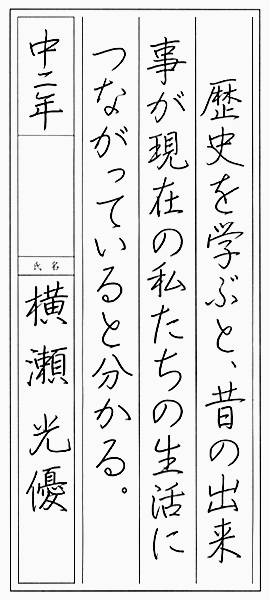 歴史を学ぶと、昔の出来
事が現在の私たちの生活に
つながっていると分かる。
中二年
氏名
横瀬光優